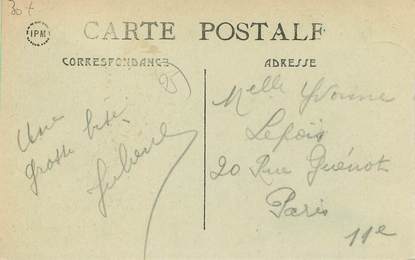 30 f
IPM
CARTE POSTALE
CORRESPONDANCE
ADRESSE
25
Une
grosse bise
Melle Yvonne
20 Rue Guénot
Paris
11e